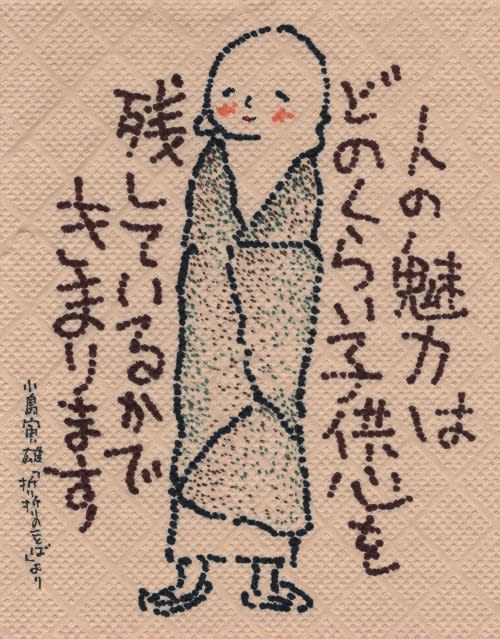 人の魅力は
どのくらい子供心を
残しているかで
きまります
小島寅雄「折折のことば」より